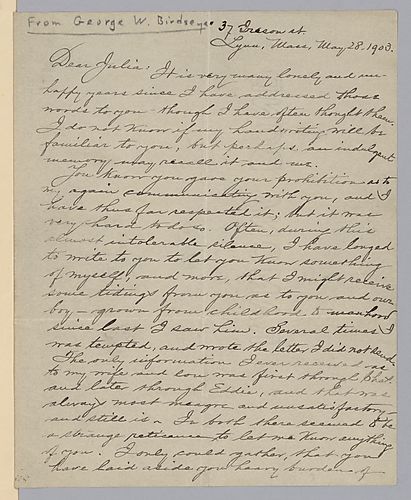 From George W. Birdseye
37 Grason st.
Lynn, Mass, May 28. 1903.
Dear Julia: It is very many lonely and un-
happy years since I have addressed those
words to you - though I have often thought them.
I do not know if my handwriting will be
familiar to you, but perhaps, an indulgent
memory may recall it and me.
You know you gave your prohibition as to
my again communicating with you, and I
have thus far respected it; but it was
very hard to do so. Often, during this
almost intolerable silence, I have longed
to write to you to let you know something
of myself, and more, that I might receive
some tidings from you as to you and our
boy - grown from childhood to manhood
since last I saw him. Several times I
was tempted, and wrote the letter I did not send.
The only information I ever received as
to my wife and son was first through
and later through Eddie, and that was
always most meagre and unsatisfactory -
and still is. In both there seemed to be
a strange reticence to let me know anything
of you. I only could gather, that you
have laid aside your heavy burden of